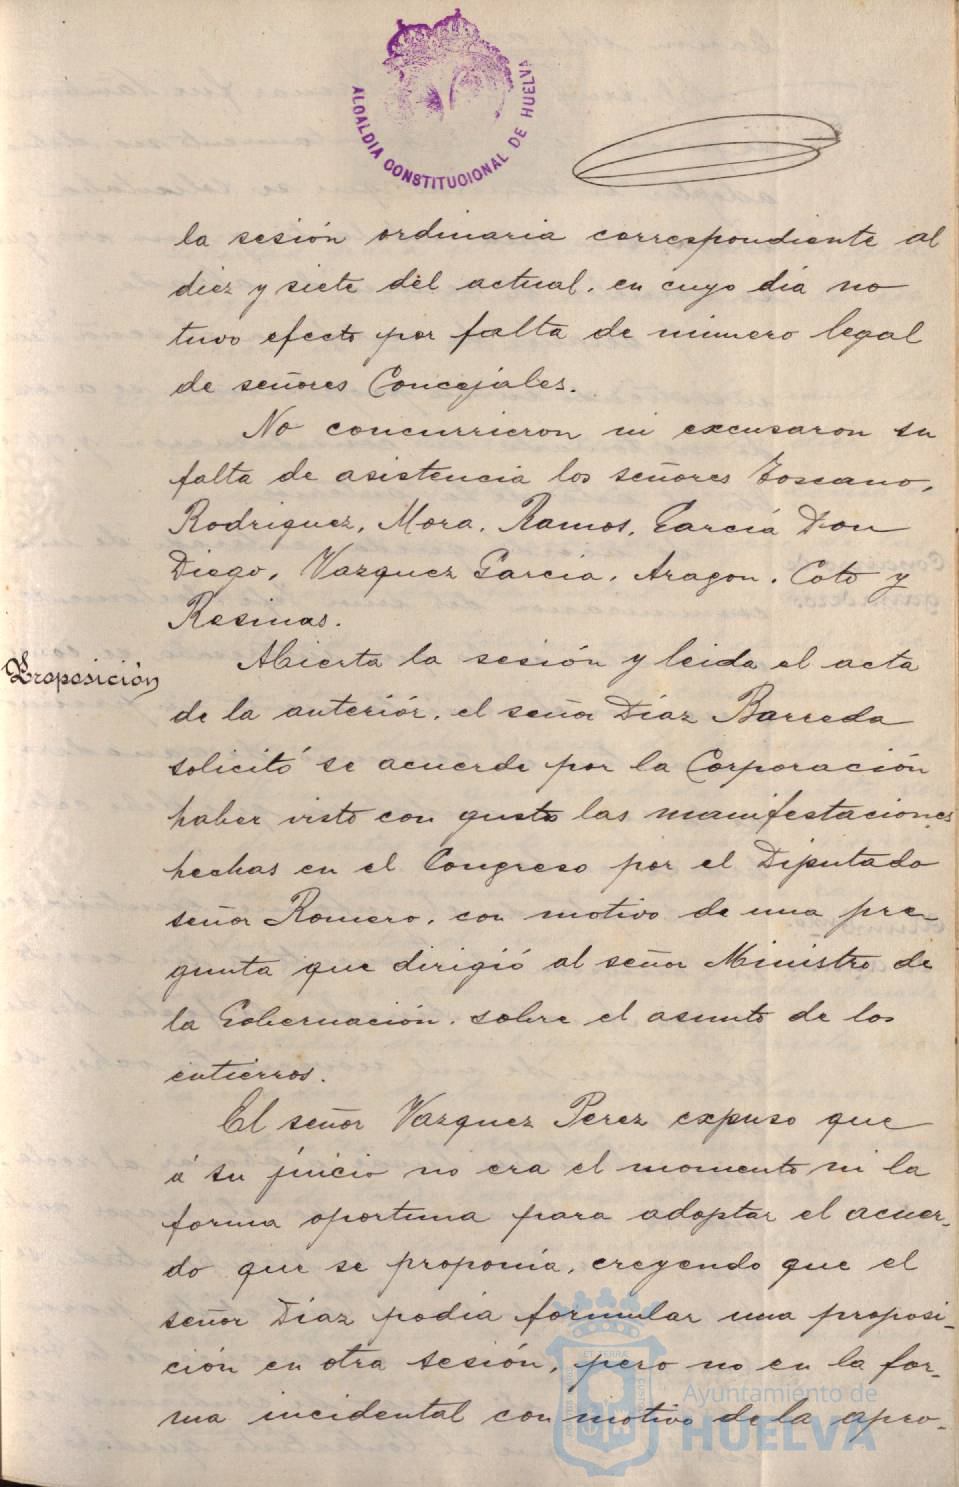 ALCALDIA CONSTITUCIONAL DE HUELVA
la sesión ordinaria correspondiente al
diez y siete del actual, en cuyo día no
tuvo efecto por falta de número legal
de señores Concejales.
No concurrieron ni excusaron su
falta de asistencia los señores Toscano,
Rodriguez, Mora, Ramos, García Don
Diego, Vazquez Garcia, Aragon, Coto y
Resinas.
Proposición
Abierta la sesión y leida el acta
de la anterior, el señor Díaz Barreda
solicitó se acuerde por la Corporación
haber visto con gusto las manifestaciones
hechas en el Congreso por el Diputado
señor Romero, con motivo de una pre-
gunta que dirigió al señor Ministro de
la Gobernación, sobre el asunto de los
entierros.
El señor Vazquez Perez expuso que
á su juicio no era el momento ni la
forma oportuna para adoptar el acuer-
do que se proponía, creyendo que el
señor Díaz podía formular una proposi-
ción en otra sesión, pero no en la for-
ma incidental con motivo de la apro-
Ayuntamiento de
HUELVA